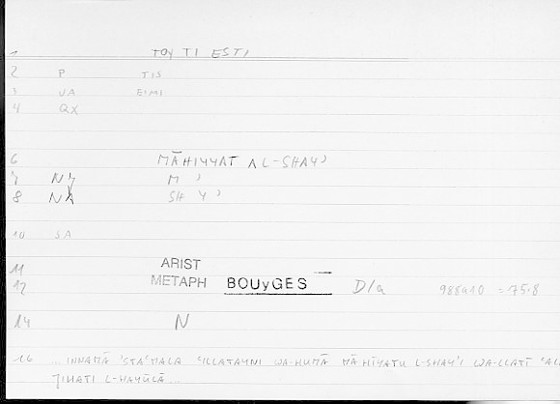 1 TOY TI ESTI
2 P TIS
3 VA EIMI
4 QX
6 MĀHIYYAT AL-SHAYʾ
7 NY M ʾ
8 NA SH Y ʾ
10 SA
11 ARIST
12 METAPH BOUyGES D/a 988a10 = 75.8
14 N
16 ... INNAMĀ ʾSTAʿMALA ʿILLATAYNI WA-HUMĀ MĀHIYATU L-SHAYʾI WA-LLATĪ
JIHATI L-HAYŪLĀ ...